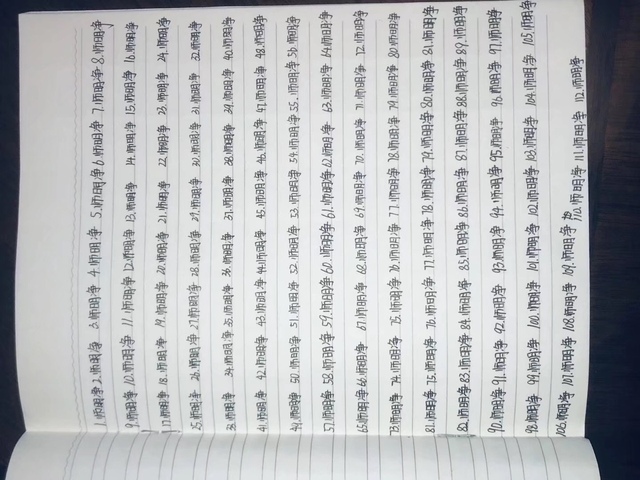 1.师明净 2.师明净 3.师明净 4.师明净 5.师明净 6.师明净 7.师明净 8.师明净
9.师明净 10.师明净 11.师明净 12.师明净 13.师明净 14.师明净 15.师明净 16.师明净
17.师明净 18.师明净 19.师明净 20.师明净 21.师明净 22.师明净 23.师明净 24.师明净
25.师明净 26.师明净 27.师明净 28.师明净 29.师明净 30.师明净 31.师明净 32.师明净
33.师明净 34.师明净 35.师明净 36.师明净 37.师明净 38.师明净 39.师明净 40.师明净
41.师明净 42.师明净 43.师明净 44.师明净 45.师明净 46.师明净 47.师明净 48.师明净
49.师明净 50.师明净 51.师明净 52.师明净 53.师明净 54.师明净 55.师明净 56.师明净
57.师明净 58.师明净 59.师明净 60.师明净 61.师明净 62.师明净 63.师明净 64.师明净
65.师明净 66.师明净 67.师明净 68.师明净 69.师明净 70.师明净 71.师明净 72.师明净
73.师明净 74.师明净 75.师明净 76.师明净 77.师明净 78.师明净 79.师明净 80.师明净
81.师明净 75.师明净 76.师明净 77.师明净 78.师明净 79.师明净 80.师明净 81.师明净
82.师明净 83.师明净 84.师明净 85.师明净 86.师明净 87.师明净 88.师明净 89.师明净
90.师明净 91.师明净 92.师明净 93.师明净 94.师明净 95.师明净 96.师明净 97.师明净
98.师明净 99.师明净 100.师明净 101.师明净 102.师明净 103.师明净 104.师明净 105.师明净
106.师明净 107.师明净 108.师明净 109.师明净 110.师明净 111.师明净 112.师明净